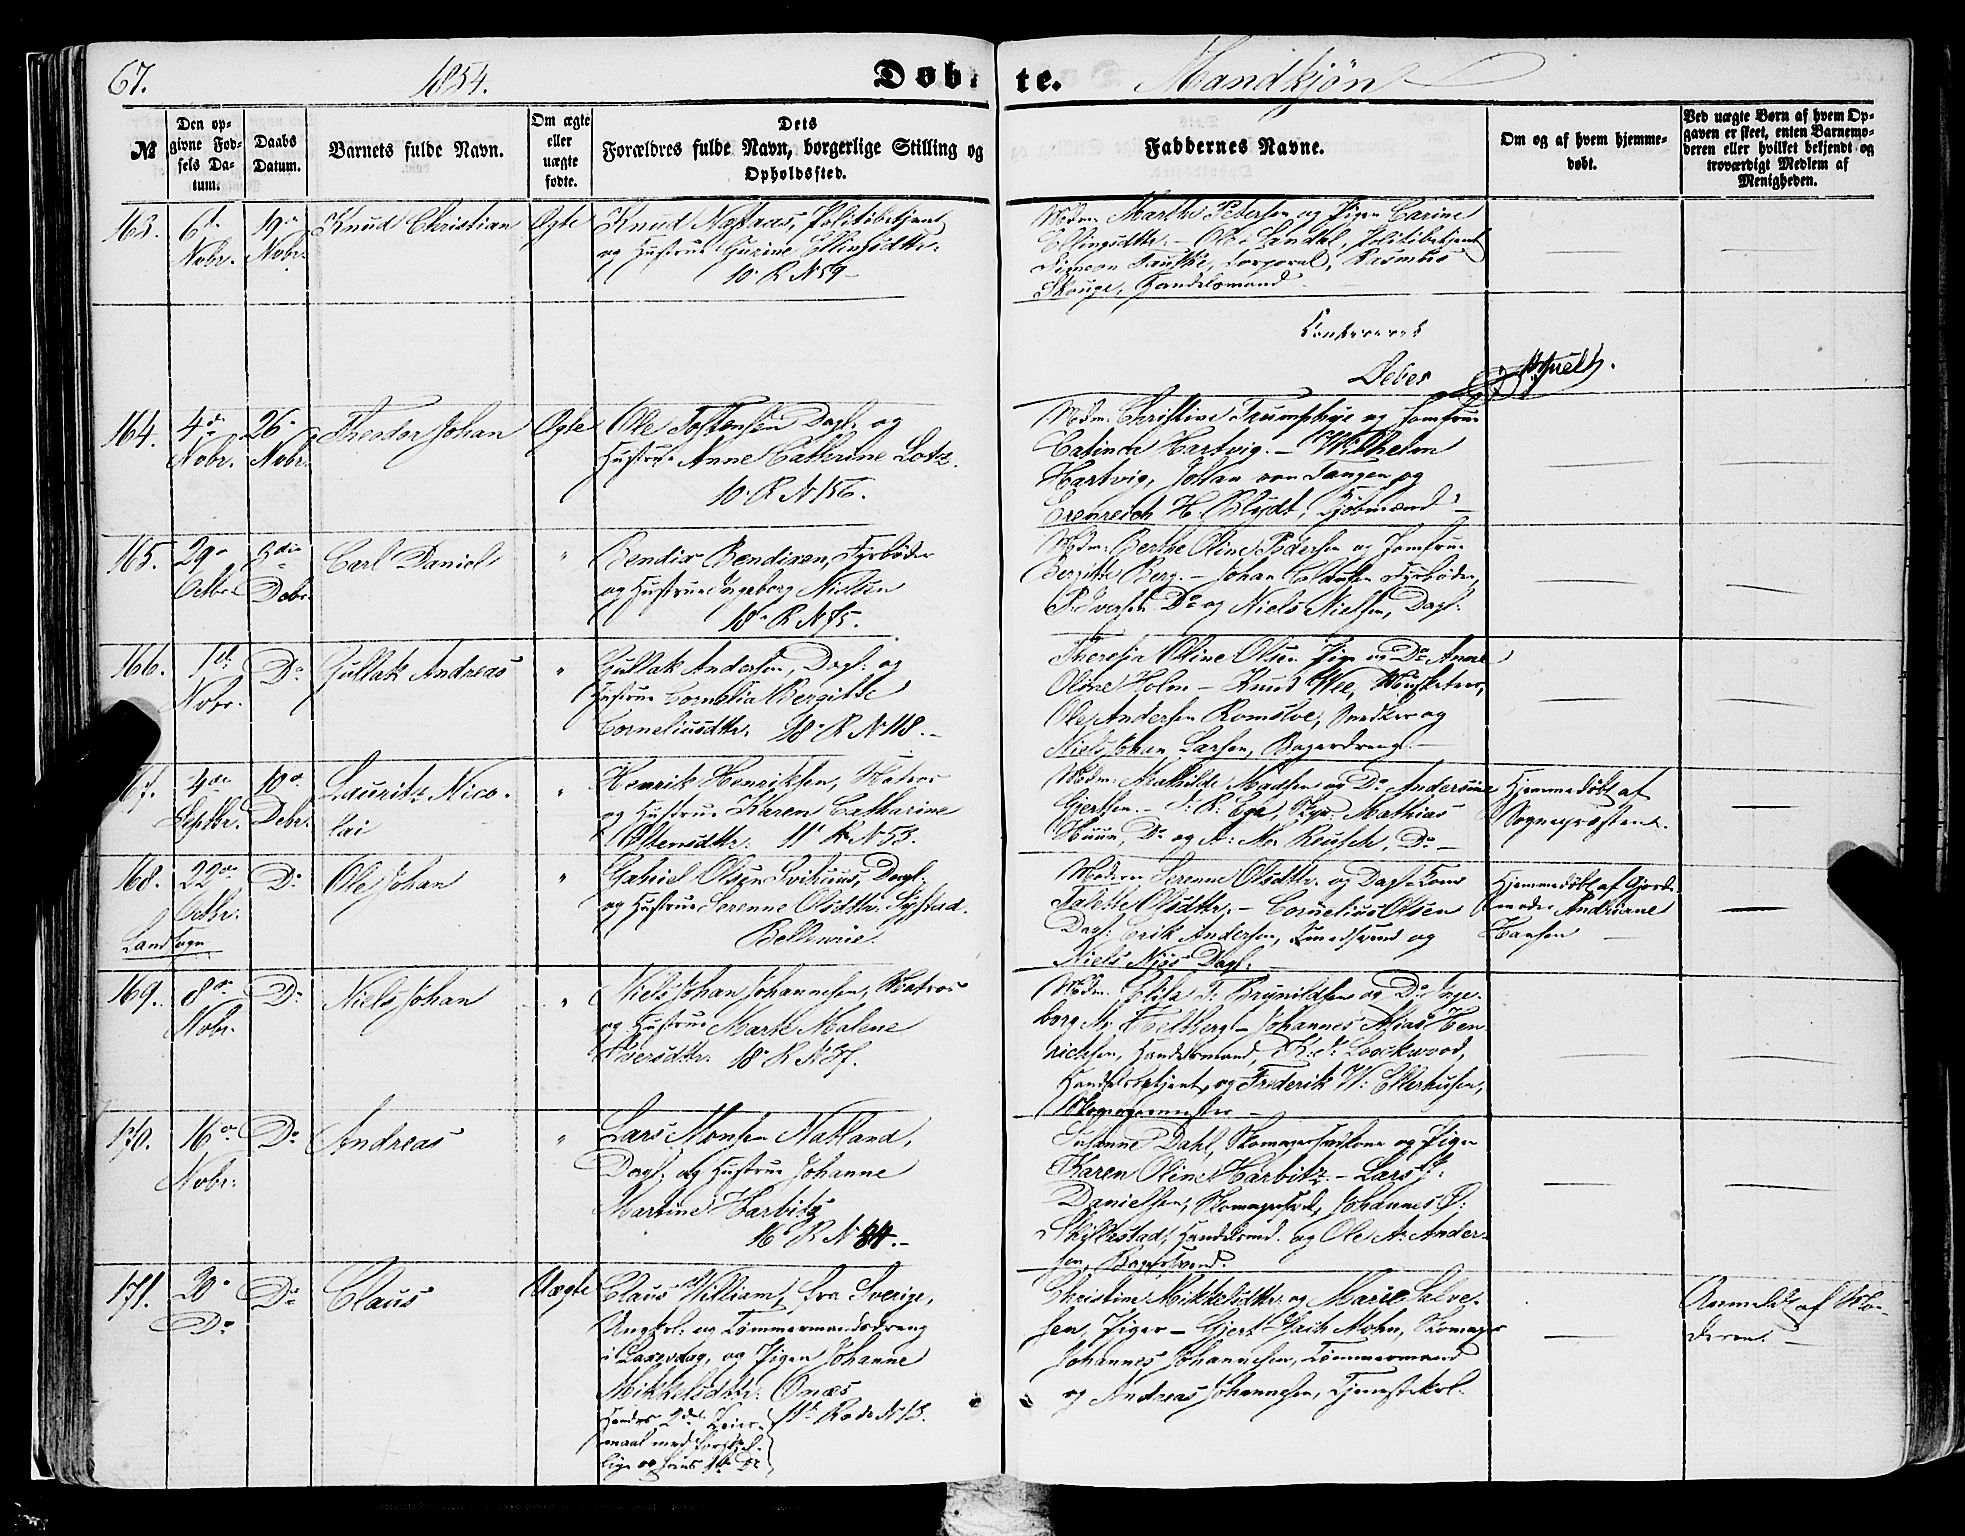 67.
1854.
Døbte.
Mandkjøn
№
Den opgivne Fødsels Datum.
Daabs Datum.
Barnets fulde Navn.
Om ægte eller uægte fødte.
Dets Forældres fulde Navn, borgerlige Stilling og Opholdssted.
Faddernes Navne.
Om og af hvem hjemmedøbt.
Ved uægte Børn af hvem Opgaven er skeet, enten Barnemoderen eller hvilket bekjendt og troværdigt Medlem af Menigheden.
163.
6te Novbr.
19de Novbr.
Knud Christian
Ægte
Knud Nastaas, Politibetjent
og Hustrue Gurine Ellingsdttr.
10. R N 59
Mdm. Marthe Petersen og Pigen Carine
Ellingsdttr. – Ole Landal, Politibetjent
Simeon, Corporal, Rasmus
Skouge, Handelsmand
Confereret
Debes
164.
4de Novbr.
26. Novbr.
Theodor Johan
Ægte
Ole Tostensen Dagl. og
Hustrue Anne Cathrine Lotz.
10. R N 156.
Mdm. Christine og Jomfrue
Catinca Hartvig. – Wilhelm
Hartvig, Johan von Tangen og
Erenreich H. Blydt, Kjøbmænd
165.
29. Octbr.
3die Debr.
Carl Daniel
"
Bendix Bendixen, Fyrbøder
og Hustrue Ingeborg Nielsen
18. R N 75.
Mdm. Berthe Oline Pedersen og Jomfrue
Bergitte Berg. – Johan Clausen Fyrbøder,
P. Iversen Do og Niels Nielsen, Dagl.
166.
1te Novbr.
Do
Gullak Andreas
"
Gullak Andersen, Dagl. og
Hustrue Cornelia Bergitte
Corneliusdttr. 18. R N 118.
Theresia Oline Olsen Pige og Do Anne
Oline Holm – Knud Wee, Musketeer,
Ole Andersen Romslve, Snedker og
Niels Johan Larsen, Bagerdreng.
167.
4de Septbr.
10. Debr.
Lauritz Nico-
lai
"
Henrik Henriksen, Matros
og Hustrue Karen Catharine
Ostensdttr. 11. R N 53.
Mdm. Mathilde Madsen og Do Andersine
Gjertsen. – Mathias
Do og A. M. Reusch, Do
Hjemmedøbt af
Sognepræsten.
168.
22. Octbr.
Landsogn
Do
Ole Johan
"
Gabriel Olsen, Dagl.
og Hustrue Serenne Olsdttr. Sygstad.
Bellevue.
Moderen Serenne Olsdttr. og Dagl. Kone
Talette Olsdttr. – Cornelius Olsen
Dagl. Erik Andersen, Smedsvend og
Niels Njøs Dagl.
Hjemmedøbt af Gjorde-
moder Andriane
Hansen
169.
8. Novbr.
Do
Niels Johan
"
Niels Johan Johannesen, Matros
og Hustrue Marte Malene
Iversdttr. 18. R N 37.
Mdm. Elisa T. Brynildsen og Do Inge-
borg M. Feltberg – Johannes Alias Hen-
richsen, Handelsmand, K. A. Loockwood,
Handelsbetjent og Frederik W. Ellerhusen,
Skomagermester
170.
16. Novbr.
Do
Andreas
"
Lars Monsen Natland,
Dagl. og Hustrue Johanne
Martine Harbitz
16. R N 84.
Susanne Dahl, Skomagersvendkone og Pige
Karen Oline Harbitz. – Lars
Danielsen, Skomagersvd., Johannes Ø.
Skillestad, Handelsmd. og Ole A. Ander-
sen, Bagersvend.
171.
20. Do
Do
Claus
Uægte
Claus William, fra Sverige,
Ungkrl. og Tømmermandsdreng
i Laxevaag, og Pigen Johanne
Mikkelsdttr. Onæs
11. Rode N 13.
Hendes 2det Leier-
maal med forskjel-
lige og hans 1te Do
Christine Mikkelsdttr. og Marie Salve-
sen, Piger – Gjert Mohn, Skomager
Johannes Johannesen, Tømmermand
og Andreas Johannesen, Tjenestekrl.
Anmeldt af Mo-
deren.